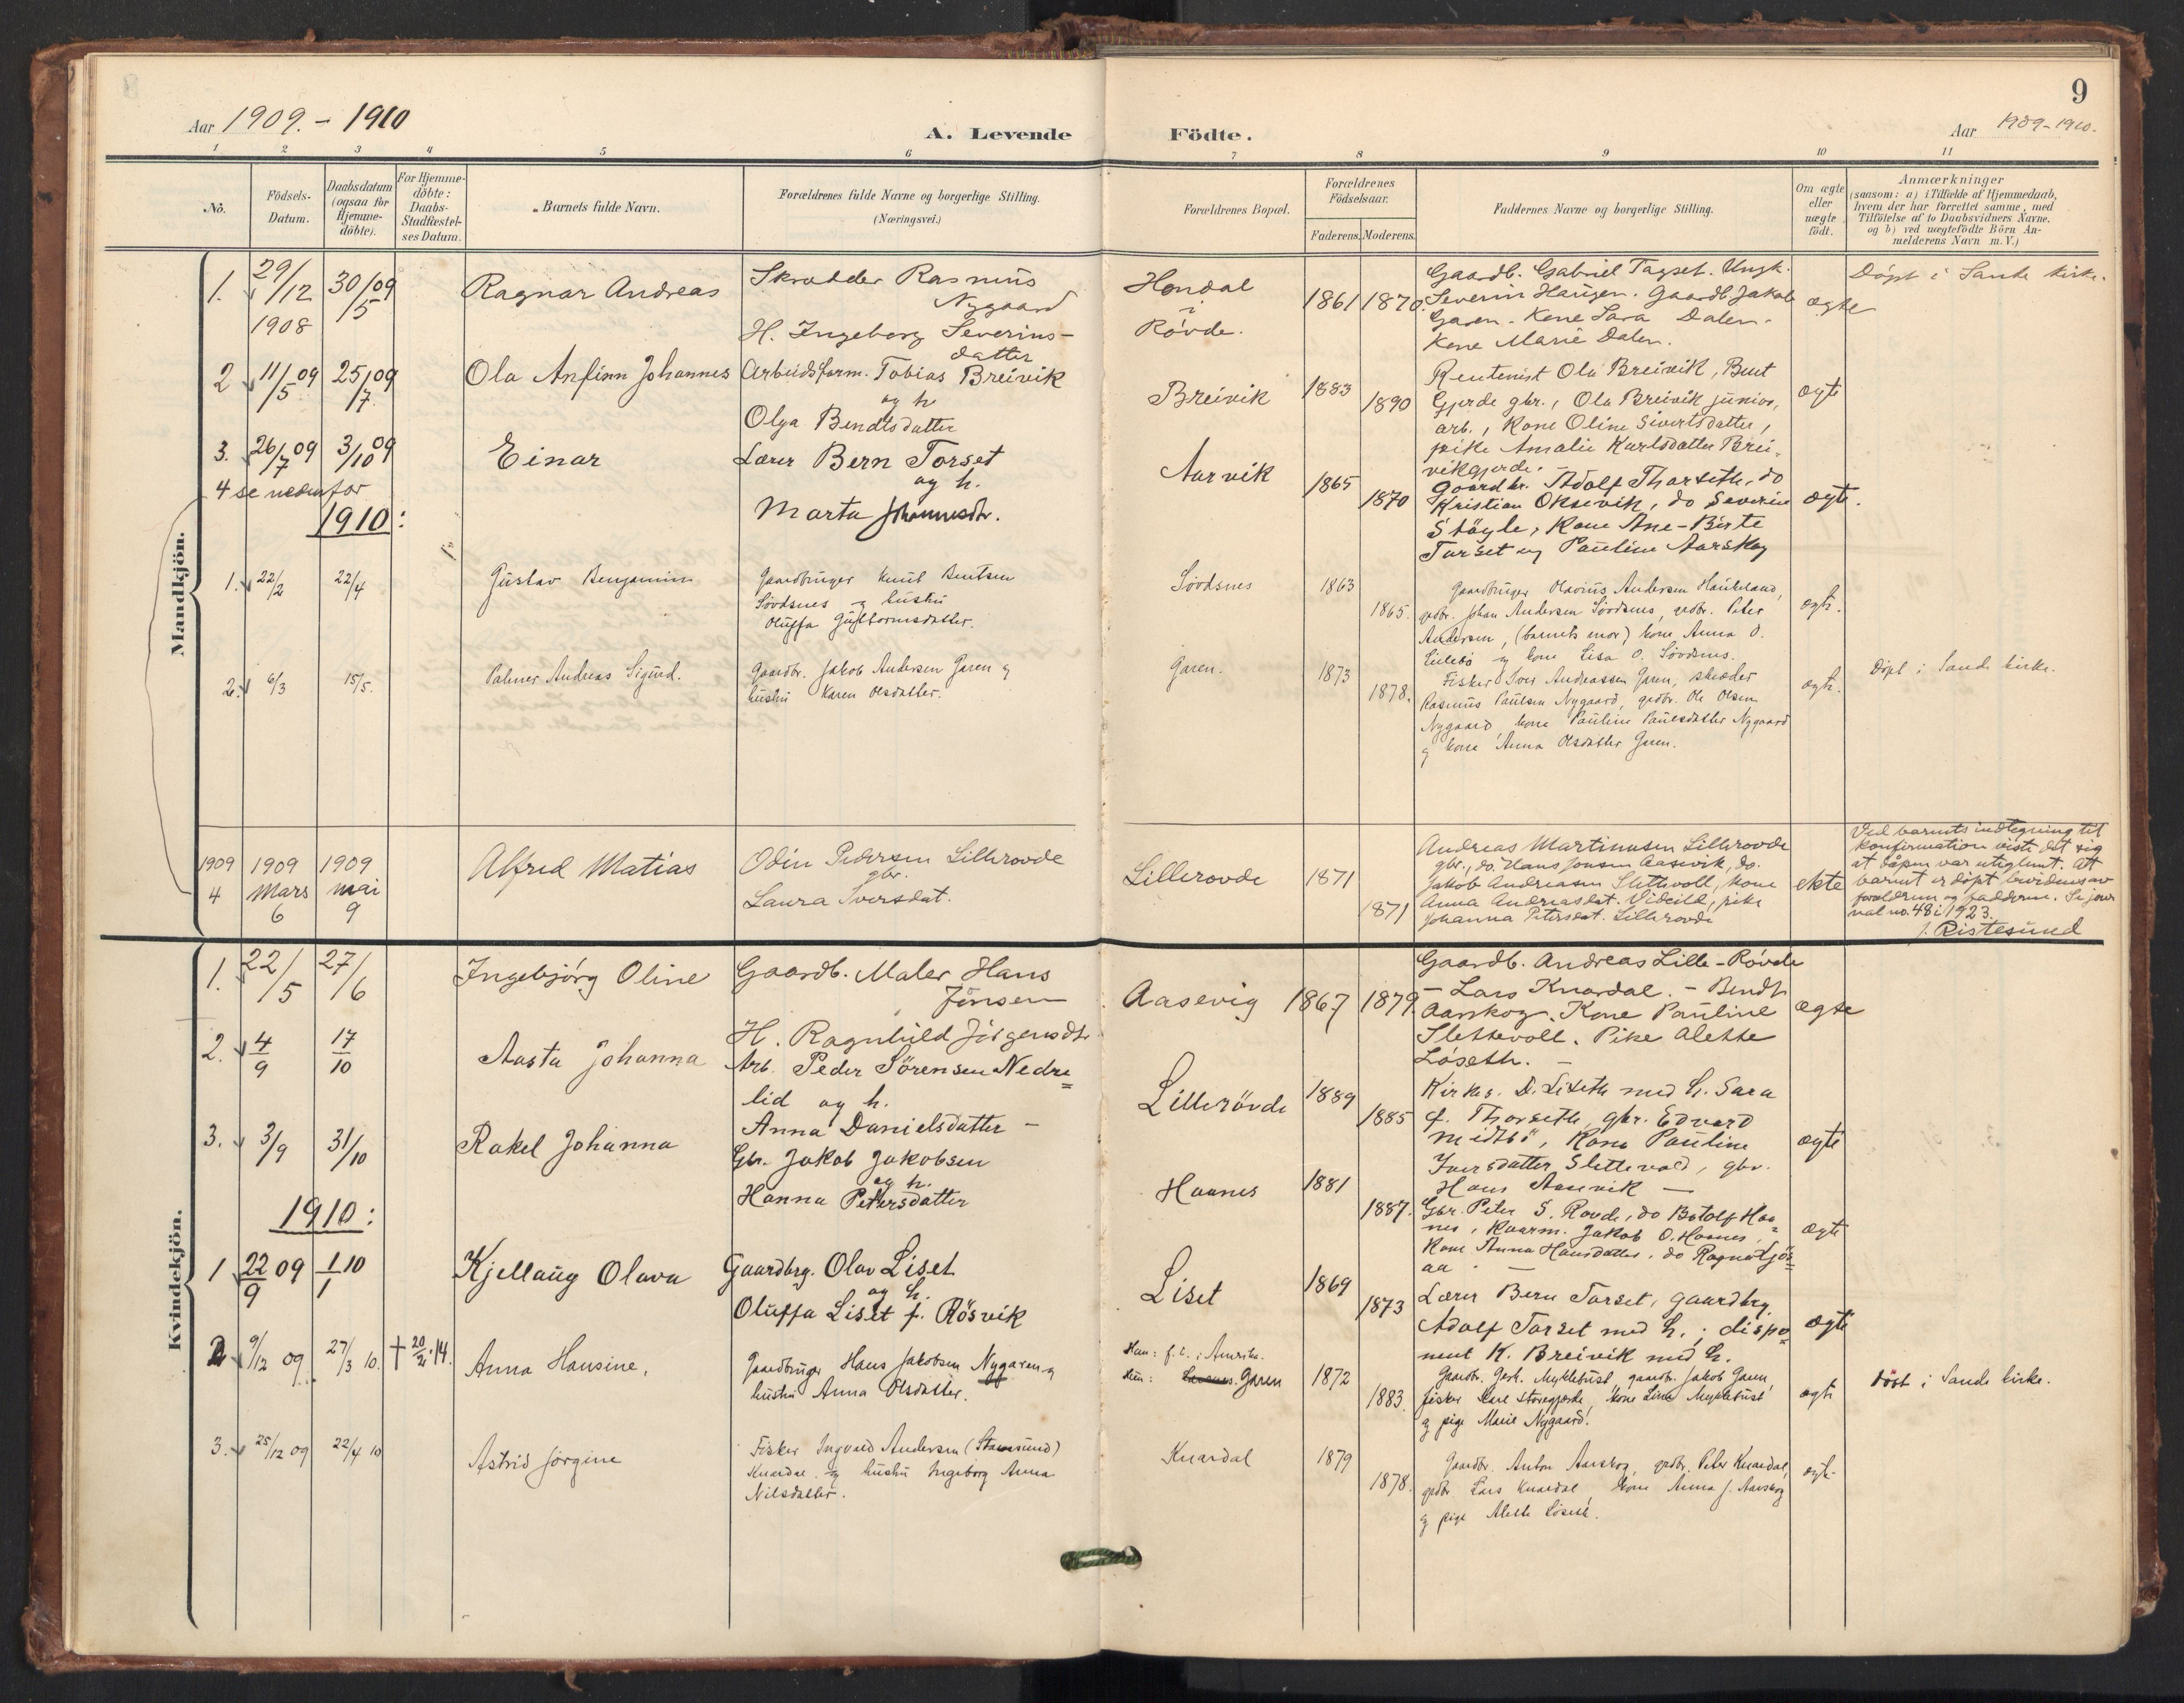 9
Aar 1909. - 1910
A. Levende Födte.
Aar 1909-1910.
1 2 3 4 5 6 7 8 9 10 11
No.
Födsels-Datum.
Daabsdatum (ogsaa for Hjemme-döbte).
For Hjemme-döbte: Daabs-Stadfæstel-ses Datum.
Barnets fulde Navn.
Forældrenes fulde Navne og borgerlige Stilling.
(Næringsvei.)
Forældrenes Bopæl.
Forældrenes Födselsaar.
Faderens. Moderens.
Faddernes Navne og borgerlige Stilling.
Om ægte eller uægte födt.
Anmærkninger
(saasom: a) i Tilfælde af Hjemmedaab,
hvem der har forrettet samme, med
Tilföielse af to Daabsvidners Navne.
og b) ved uægtefödte Börn An-
melderens Navn m. V.)
Mandkjön.
1. 29/12 1908 30/5 09
Ragnar Andreas
Skrædder Rasmus
Nygaard
H. Ingeborg Severins-
datter
Hondal
i
Rövde.
1861 1870.
Gaardb. Gabriel Tagset. Ungk.
Severin Haugen. Gaardb. Jakob
Garen. Kone Sara Dalen.
Kone Marie Dalen.
ægte
Döpt i Sande kirke.
2 11/5 09 25/7 09
Ola Anfinn Johannes
Arbeidsform. Tobias Breivik
og h.
Olga Bendtsdatter
Breivik
1883 1890
Rentenist Ola Breivik, Bent
Gjerde gbr., Ola Breivik junior,
arb., Kone Oline Sivertsdatter,
pike Amalie Karlsdatter Brei-
vikgjerde.
ægte
3. 26/7 09 3/10 09
Einar
Lærer Bern Torset
og h.
Marta Johannesdtr.
Aarvik
1865 1870
Gaardbr. Adolf Tharseth, do
Kristian Oksevik, do Severin
Stöyle, Kone Ane-Birte
Torset og Pauline Aarskog
ægte.
4 se nedenfor
1910:
1. 22/2 22/4
Gustav Benjamin
Gaardbruger Knut Bentsen
Sövdsnes og hustru
Oluffa Guttormsdatter.
Sövdsnes
1863 1865.
Gaardbruger Olavius Andersen Haukeland,
grdbr. Johan Andersen Sövdsnes, grdbr. Peter
Andersen, (barnets mor) kone Anna O.
Lillebö og kone Lisa O. Sövdsnes.
ægte.
2. 6/3 15/5.
Palmer Andreas Sigurd.
Gaardbr. Jakob Andersen Garen og
hustru Karen Olsdatter.
Garen.
1873 1878.
Fisker Iver Andreassen Garen, skræder
Rasmus Paulsen Nygaard, grdbr. Ole Olsen
Nygaard, kone Pauline Paulsdatter Nygaard
og kone Anna Olsdatter Garen.
ægte.
Döpt i Sande kirke.
1909 4 1909 Mars 6 1909 mai 9
Alfred Matias
Odin Pedersen Lillerovde
gbr.
Laura Iversdat.
Lillerovde
1871 1871
Andreas Martinusen Lillerovde
gbr., do. Hans Jonsen Aasevik, do.
Jakob Andreasen Slettevoll, kone
Anna Andreasdat. Videild, pike
Johanna Petersdat. Lillerovde
ekte
Ved barnets indtegning til
konfirmation viste det sig
at dåpen var utiglemt. Att
barnet er döpt bevidnes av
forældrene og fadderne. Se jour
nal no. 48 i 1923.
J. Ristesund
Kvindekjön.
1. 22/5 27/6
Ingebjörg Oline
Gaardb. Maler Hans
Jonsen
H. Ragnhild Jörgensdtr.
Aasevig
1867 1879.
Gaardb. Andreas Lille-Rövde
- Lars Knardal. - Bendt
Aarskog. Kone Pauline
Slettevoll. Pike Alette
Löseth.
ægte
2. 4/9 17/10
Aasta Johanna
Arb. Peder Sörensen Nedre=
lid og h.
Anna Danielsdatter
Lillerövde
1889 1885
Kirkes. D. Liseth med h. Sara
f. Thorseth, gbr. Edvard
Midtbö, Kone Pauline
Iversdatter Slettevold, gbr.
Hans Aasevik
ægte
3. 3/9 31/10
Rakel Johanna
Gbr. Jakob Jakobsen
og h.
Hanna Petersdatter
Haanes
1881 1887.
Gbr. Peter S. Rovde, do Botolf Haa=
nes, Kaarm. Jakob O. Haanes,
Kone Anna Hansdatter, do Ragna Sjö=
aa
ægte
1910:
1 22/9 09 1/1 10
Kjellaug Olava
Gaardbrg. Olav Liset
og h.
Oluffa Liset f. Rösvik
Liset
1869 1873
Lærer Bern Torset, gaardbrg.
Adolf Torset med h., dispo=
nent K. Breivik med h.
ægte
2 9/12 09. 27/3 10. † 20/2 14.
Anna Hansine.
Gaardbruger Hans Jakobsen Nygaren og
hustru Anna Olsdatter.
Han: f. t. i Amerika.
Hun: Garen
1872 1883.
Gaardbr. Gert. Myklebust, gaardbr. Jakob Garen,
fisker Karl Storegjerde, kone Lina Myklebust
og pige Marie Nygaard.
ægte
Döbt i Sande kirke.
3. 25/12 09 22/4 10
Astrid Jörgine
Fisker Ingvald Andersen (Stamsund)
Knardal og hustru Ingeborg Anna
Nilsdatter.
Knardal
1879 1878.
Gaardbr. Anton Aarskog, grdbr. Peter Knardal,
grdbr. Lars Knardal, kone Anna J. Aarskog
og pige Alette Löseth.
ægte